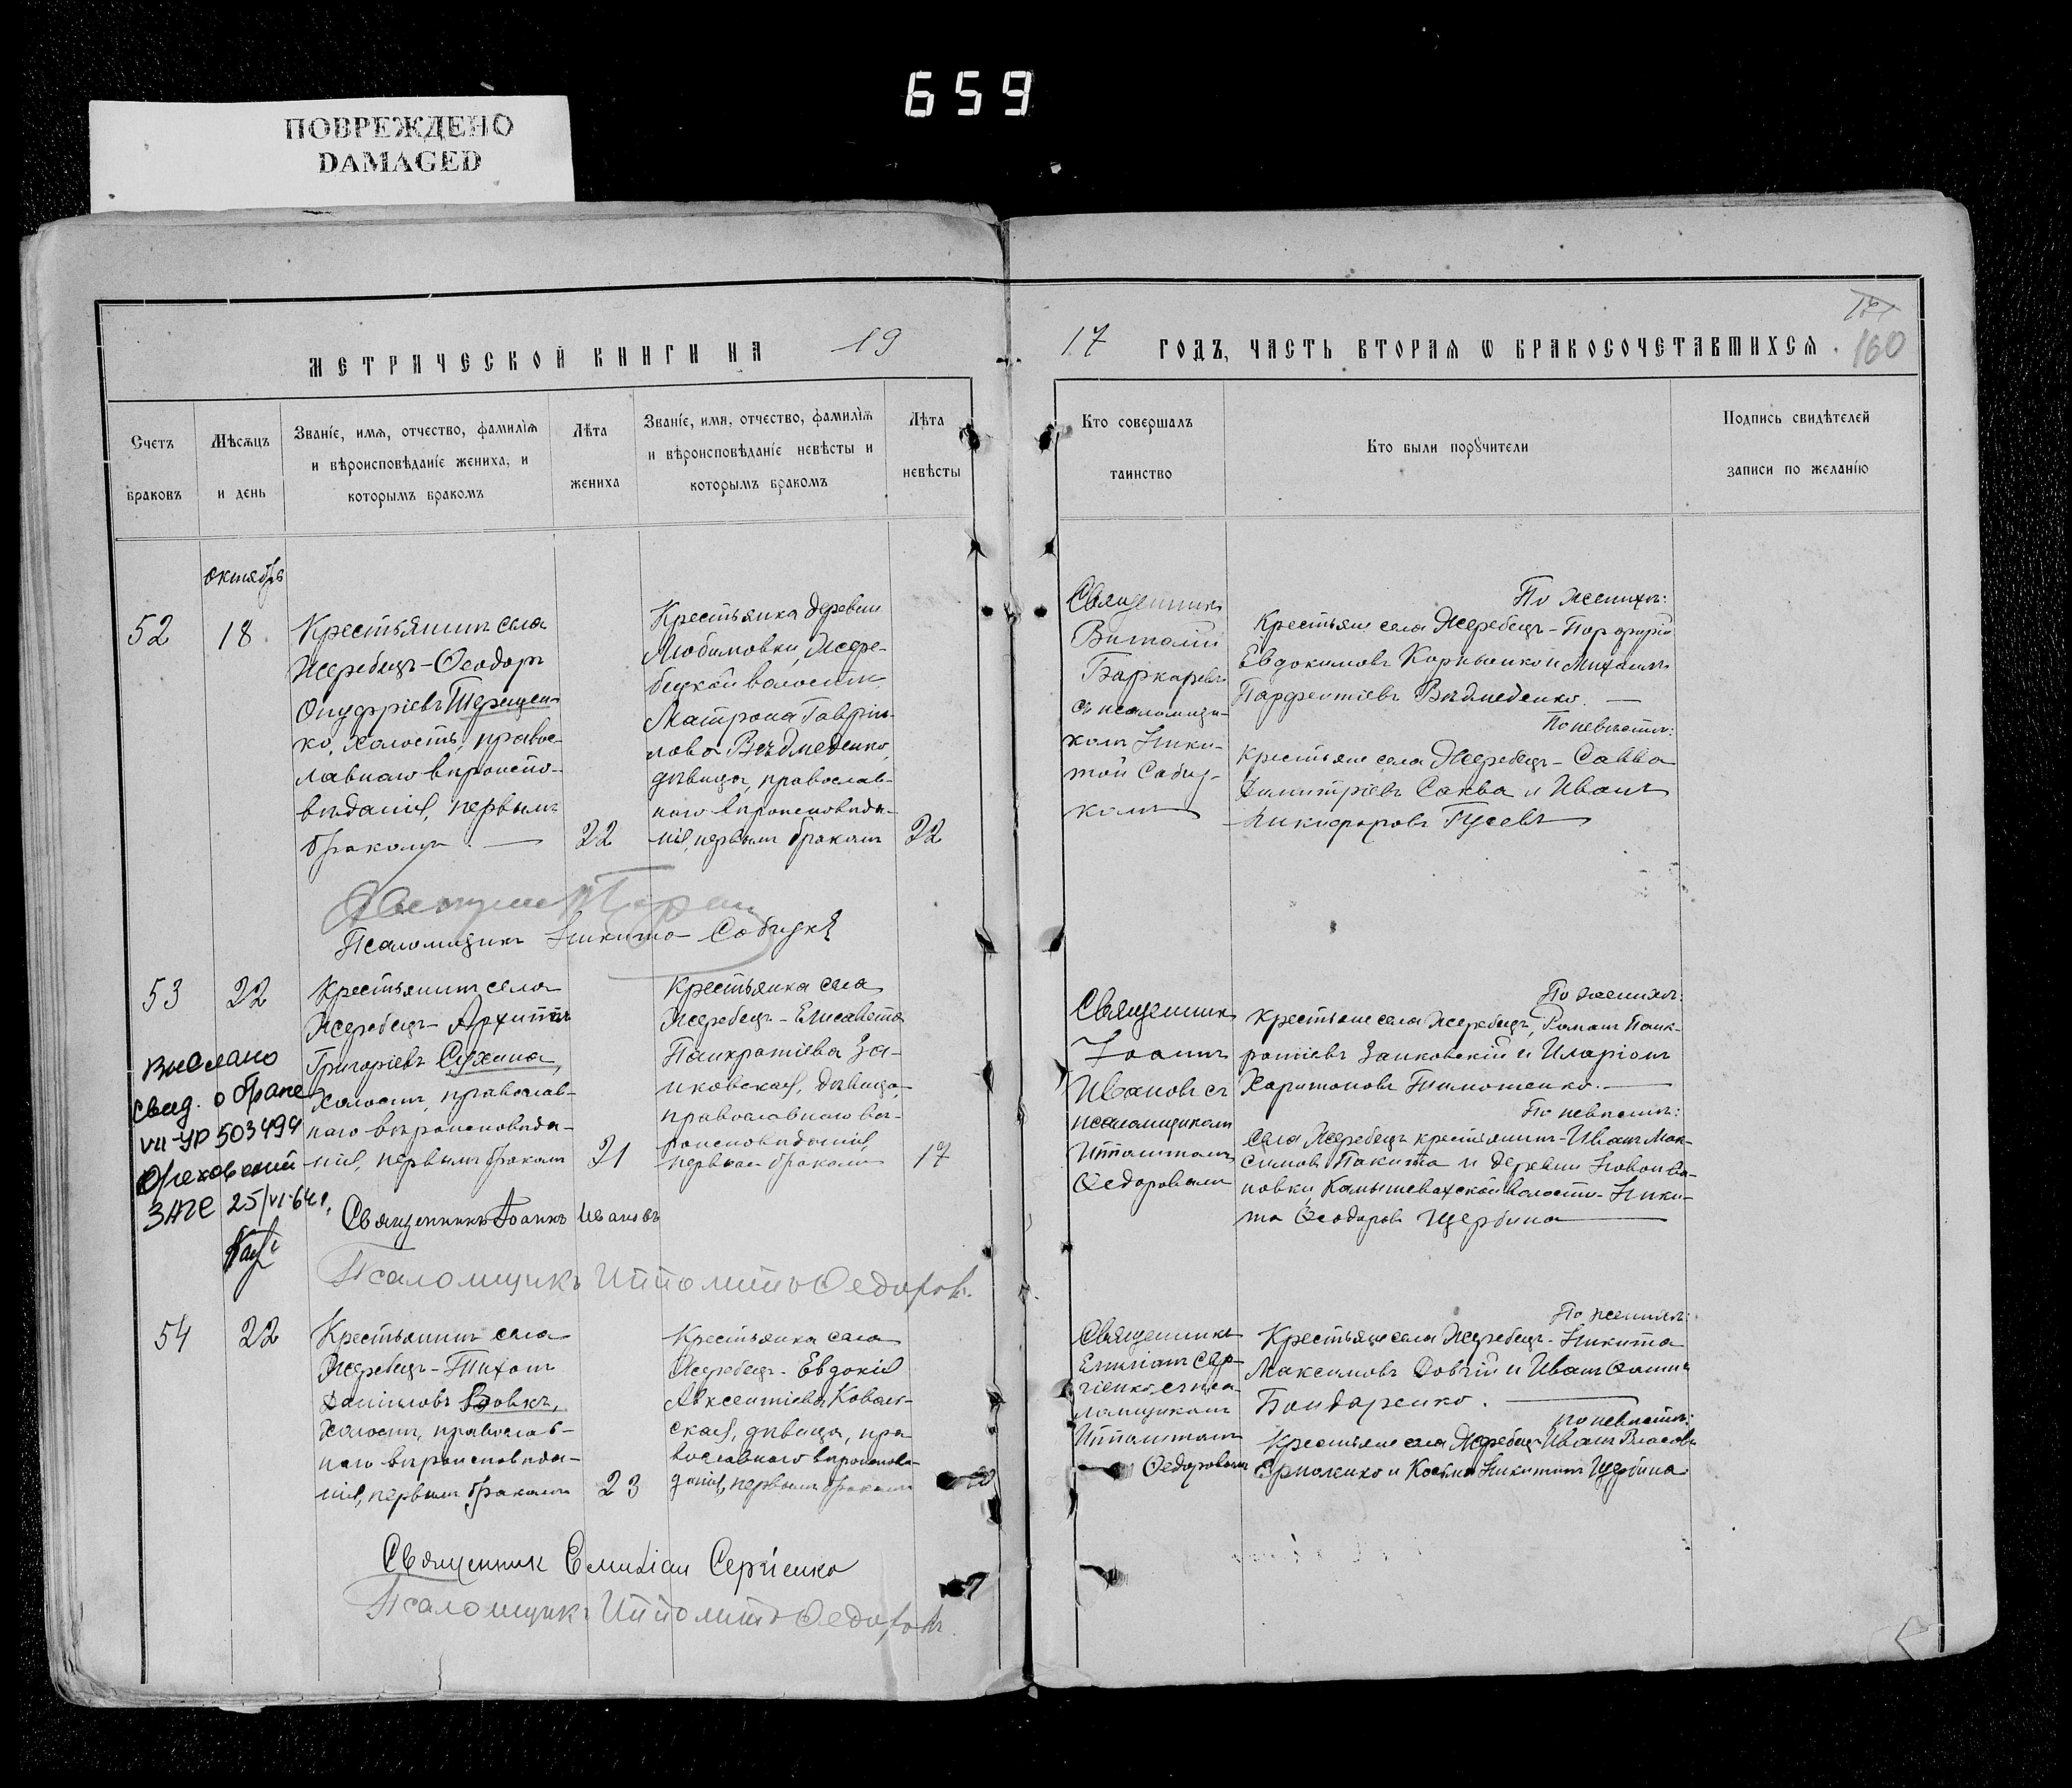 659
ПОВРЕЖДЕНО
DAMAGED
МЕТРИЧЕСКОЙ КНИГИ НА 19
17 ГОДЪ, ЧАСТЬ ВТОРАѦ Ѡ БРАКОСОЧЕТАВШИХСѦ.
171
160
Счетъ
браковъ
Мѣсѧцъ
и день
Званіе, имѧ, отчество, фамиліѧ
и вѣроисповѣданіе жениха, и
которымъ бракомъ
Лѣта
жениха
Званіе, имѧ, отчество, фамиліѧ
и вѣроисповѣданіе невѣсты и
которымъ бракомъ
Лѣта
невѣсты
Кто совершалъ
таинство
Кто были порꙋчители
Подпись свидѣтелей
записи по желанію
октябрь
52
18
Крестьянинъ села
Жеребецъ-Ѳеодоръ
Онуфріевъ Терещен-
ко, холостъ, правос-
лавнаго вѣроиспо-
вѣданія, первымъ
бракомъ. —
22
Крестьянка деревни
Любимовки, Жере-
бецкой волости,
Матрона Гаврiи-
лова Вѣдмеденко,
дѣвица, православ-
наго вѣроисповѣда-
нія, первымъ бракомъ
22
Священникъ
Виталій
съ псаломщи-
комъ Ники-
той Собиц-
комъ
По женихѣ:
Крестьяне села Жеребецъ-Порфирій
Евдокимовъ Корніенко и Михаилъ
Парфентіевъ Вѣдмеденко. —
По невѣстѣ:
Крестьяне села Жеребецъ-Савва
Димитріевъ Саква и Иванъ
Никифоровъ Гусевъ
Псаломщикъ Никита Собицкій
53
22
Крестьянинъ села
Жеребецъ-Архиппъ
Григоріевъ Сухина,
холостъ, православ-
наго вѣроисповѣда-
нія, первымъ бракомъ
21
Крестьянка села
Жеребецъ-Елисавета
Панкратіева За-
иковская, дѣвица,
православнаго вѣ-
роисповѣданія,
первымъ бракомъ
17
Священникъ
Іоаннъ
Ивановъ съ
псаломщикомъ
Ипполитомъ
Ѳедоровымъ
По женихѣ:
Крестьяне села Жеребецъ, Романъ Панк-
ратіевъ Заиковскій и Иларіонъ
Харитоновъ Тимошенко. —
По невѣстѣ:
Села Жеребецъ крестьянинъ-Иванъ Мак-
симовъ Пакита и деревни Новоива-
новки, Камышевахской волости-Ники-
та Ѳеодоровъ Щербина
Выслано
свид. о браке
VII-УР 503499
Ореховский
ЗАГС 25/VI-64 г.
Священникъ Іоаннъ Ивановъ
Псаломщикъ Ипполитъ Ѳедоровъ.
54
22
Крестьянинъ села
Жеребецъ-Тихонъ
Даніиловъ Вовкъ,
холостъ, православ-
наго вѣроисповѣда-
нія, первымъ бракомъ
23
Крестьянка села
Жеребецъ-Евдокія
Авксентіева Коваль-
ская, дѣвица, пра-
вославнаго вѣроисповѣ-
данія, первымъ бракомъ
Священникъ
Емиліанъ Сер-
гіенко, съ пса-
ломщикомъ
Ипполитомъ
Ѳедоровымъ
По женихѣ:
Крестьяне села Жеребецъ-Никита
Максимовъ Довгій и Иванъ Ѳоминъ
Бондаренко. —
По невѣстѣ:
Крестьяне села Жеребецъ-Иванъ Власовъ
Ермоленко и Косьма Никитинъ Щербина
Священникъ Емиліан Сергіенко
Псаломщикъ Ипполитъ Ѳедоровъ.